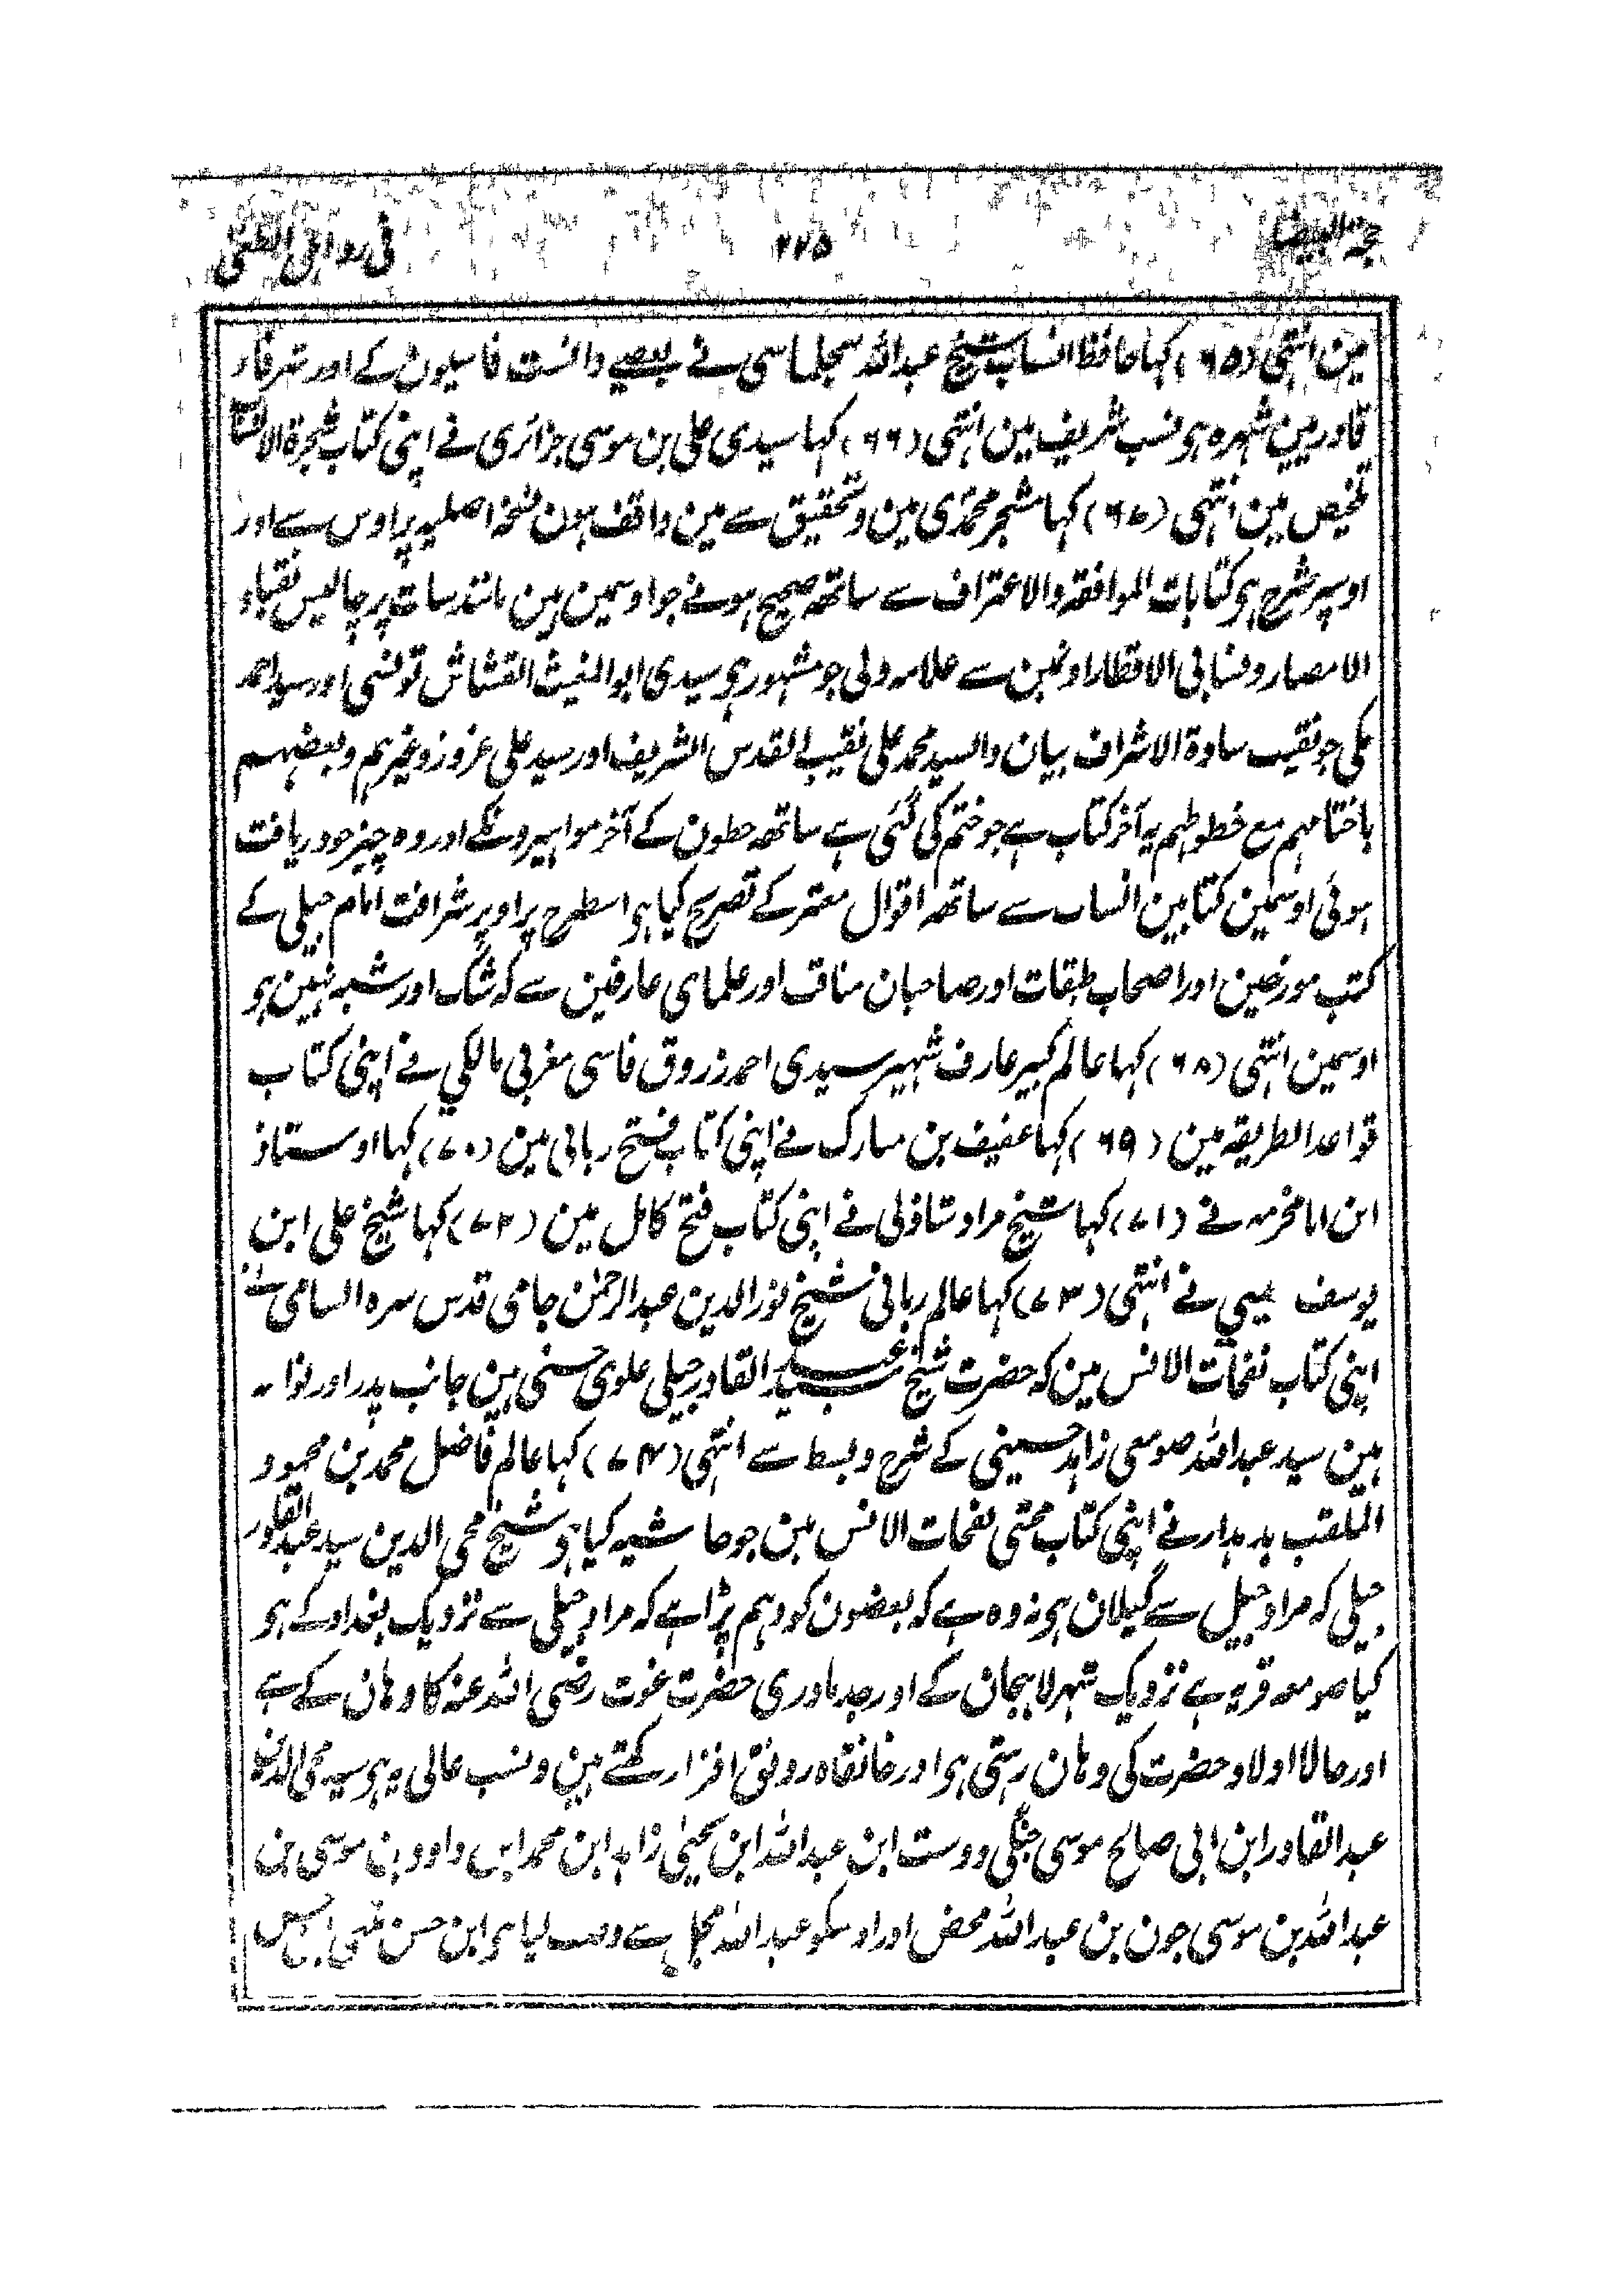 حجۃ البیضا ۲۲۵ فی رد اہل الطغی
مین انتہی (۶۵) کہا حافظ انساب شیخ عبداللہ سجلماسی نے بعضے دانست فاسیون کے اور شرفاء
قادریین شہرہ ہو نسب شریف مین انتہی (۶۶) کہا سیدی علی بن موسی جزائری نے اپنی کتاب شجرۃ
تلخیص مین انتہی (۶۷) کہا مشجر محمدی مین و تحقیق سے مین واقف ہون نسخہ اصلیہ پر اوس سے اور
اوسپر شرح ہو کتابات الموافقۃ والاعتراف سے ساتھ صحیح ہونے جو اوسمین ہین مانند سات پر چالیس نقباء
الامصار و نسابی الاقطار اونمین سے علامہ ولی جو مشہور ہو سیدی ابو الغیث القشاش تونسی اور سید احمد
مکی جو نقیب سادۃ الاشراف بیان والسید محمد علی نقیب القدس الشریف اور سید علی عزوز وغیرہم و بعضہم
باختامہم مع خطوطہم یہ آخر کتاب ہے جو ختم کی گئی ہے ساتھ خطون کے آخر مواہیرونکے اور وہ چیز جو دریافت
ہوئی اوسمین کتابین انساب سے ساتھ اقوال معتمر کے تصریح کیا ہو اسطرح پر اوپر شرافت امام جیلی کے
کتب مورخین اور اصحاب طبقات اور صاحبان مناقب اور علمای عارفین سے کہ شک اور شبہ نہین ہو
اوسمین انتہی (۶۸) کہا عالم کبیر عارف شہیر سیدی احمد زروق فاسی مغربی مالکی نے اپنی کتاب
قواعد الطریقہ مین (۶۹) کہا عفیف بن مبارک نے اپنی کتاب فتح ربانی مین (۷۰) کہا اوستاذ
ابن ابا مخرمہ نے (۷۱) کہا شیخ مراد شاذلی نے اپنی کتاب فتح کامل مین (۷۲) کہا شیخ علی ابن
یوسف عیسی نے انتہی (۷۳) کہا عالم ربانی شیخ نور الدین عبدالرحمن جامی قدس سرہ السامی نے
اپنی کتاب نفحات الانس مین کہ حضرت شیخ سید عبد القادر جیلی علوی حسنی ہین جانب پدر اور نواسہ
ہین سید عبداللہ صومعی زاہد حسینی کے شرح و بسط سے انتہی (۷۴) کہا عالم فاضل محمد بن محمود
الملقب بدہدار نے اپنی کتاب محتی نفحات الانس مین جو حاشیہ کیا ہو شیخ محی الدین سید عبد القادر
جیلی کہ مراد جیل سے گیلان ہو نہ وہ ہے کہ بعضون کو وہم پڑا ہے کہ مراد جیلی سے نزدیک بغداد کے ہو
کیا صومعہ قریہ ہے نزدیک شہر لاہجان کے اور جد مادری حضرت غوث رضی اللہ عنہ کا وہان کے ہے
اور حالا اولاد حضرت کی وہان رہتی ہو اور خانقاہ رونق افزا رکھتے ہین و نسب عالی یہ ہو سید محی الدین
عبد القادر ابن ابی صالح موسی جنگی دوست ابن عبداللہ ابن یحیی زاہد ابن محمد ابن داود بن موسی بن
عبداللہ بن موسی جون بن عبداللہ محض اور اوسکو عبداللہ مجل سے وصف لیا ہو ابن حسن مثنی ابن حسن